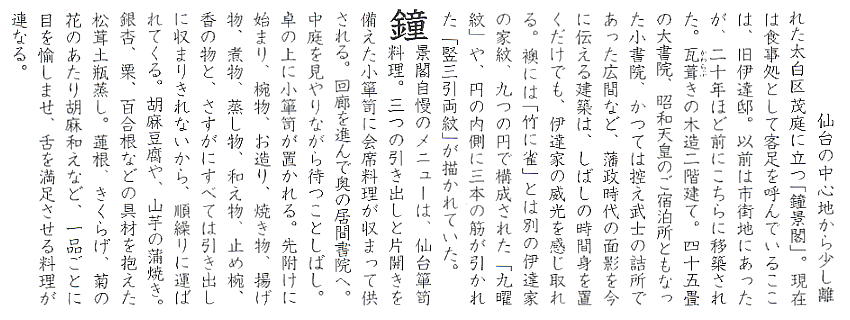 仙台の中心地から少し離
れた太白区茂庭に立つ「鐘景閣」。現在
は食事処として客足を呼んでいるここ
は、旧伊達邸。以前は市街地にあった
が、二十年ほど前にこちらに移築され
た。瓦葺きの木造二階建て。四十五畳
の大書院、昭和天皇のご宿泊所ともなっ
た小書院、かつては控え武士の詰所で
あった広間など、藩政時代の面影を今
に伝える建築は、しばしの時間身を置
くだけでも、伊達家の威光を感じ取れ
る。襖には「竹に雀」とは別の伊達家
の家紋、九つの円で構成された「九曜
紋」や、円の内側に三本の筋が引かれ
た「竪三引両紋」が描かれていた。
鐘景閣自慢のメニューは、仙台箪笥
料理。三つの引き出しと片開きを
備えた小箪笥に会席料理が収まって供
される。回廊を進んで奥の居間書院へ。
中庭を見やりながら待つことしばし。
卓の上に小箪笥が置かれる。先附けに
始まり、椀物、お造り、焼き物、揚げ
物、煮物、蒸し物、和え物、止め椀、
香の物と、さすがにすべては引き出し
に収まりきれないから、順繰りに運ば
れてくる。胡麻豆腐や、山芋の蒲焼き。
銀杏、栗、百合根などの具材を抱えた
松茸土瓶蒸し。蓮根、きくらげ、菊の
花のあたり胡麻和えなど、一品ごとに
目を愉しませ、舌を満足させる料理が
連なる。